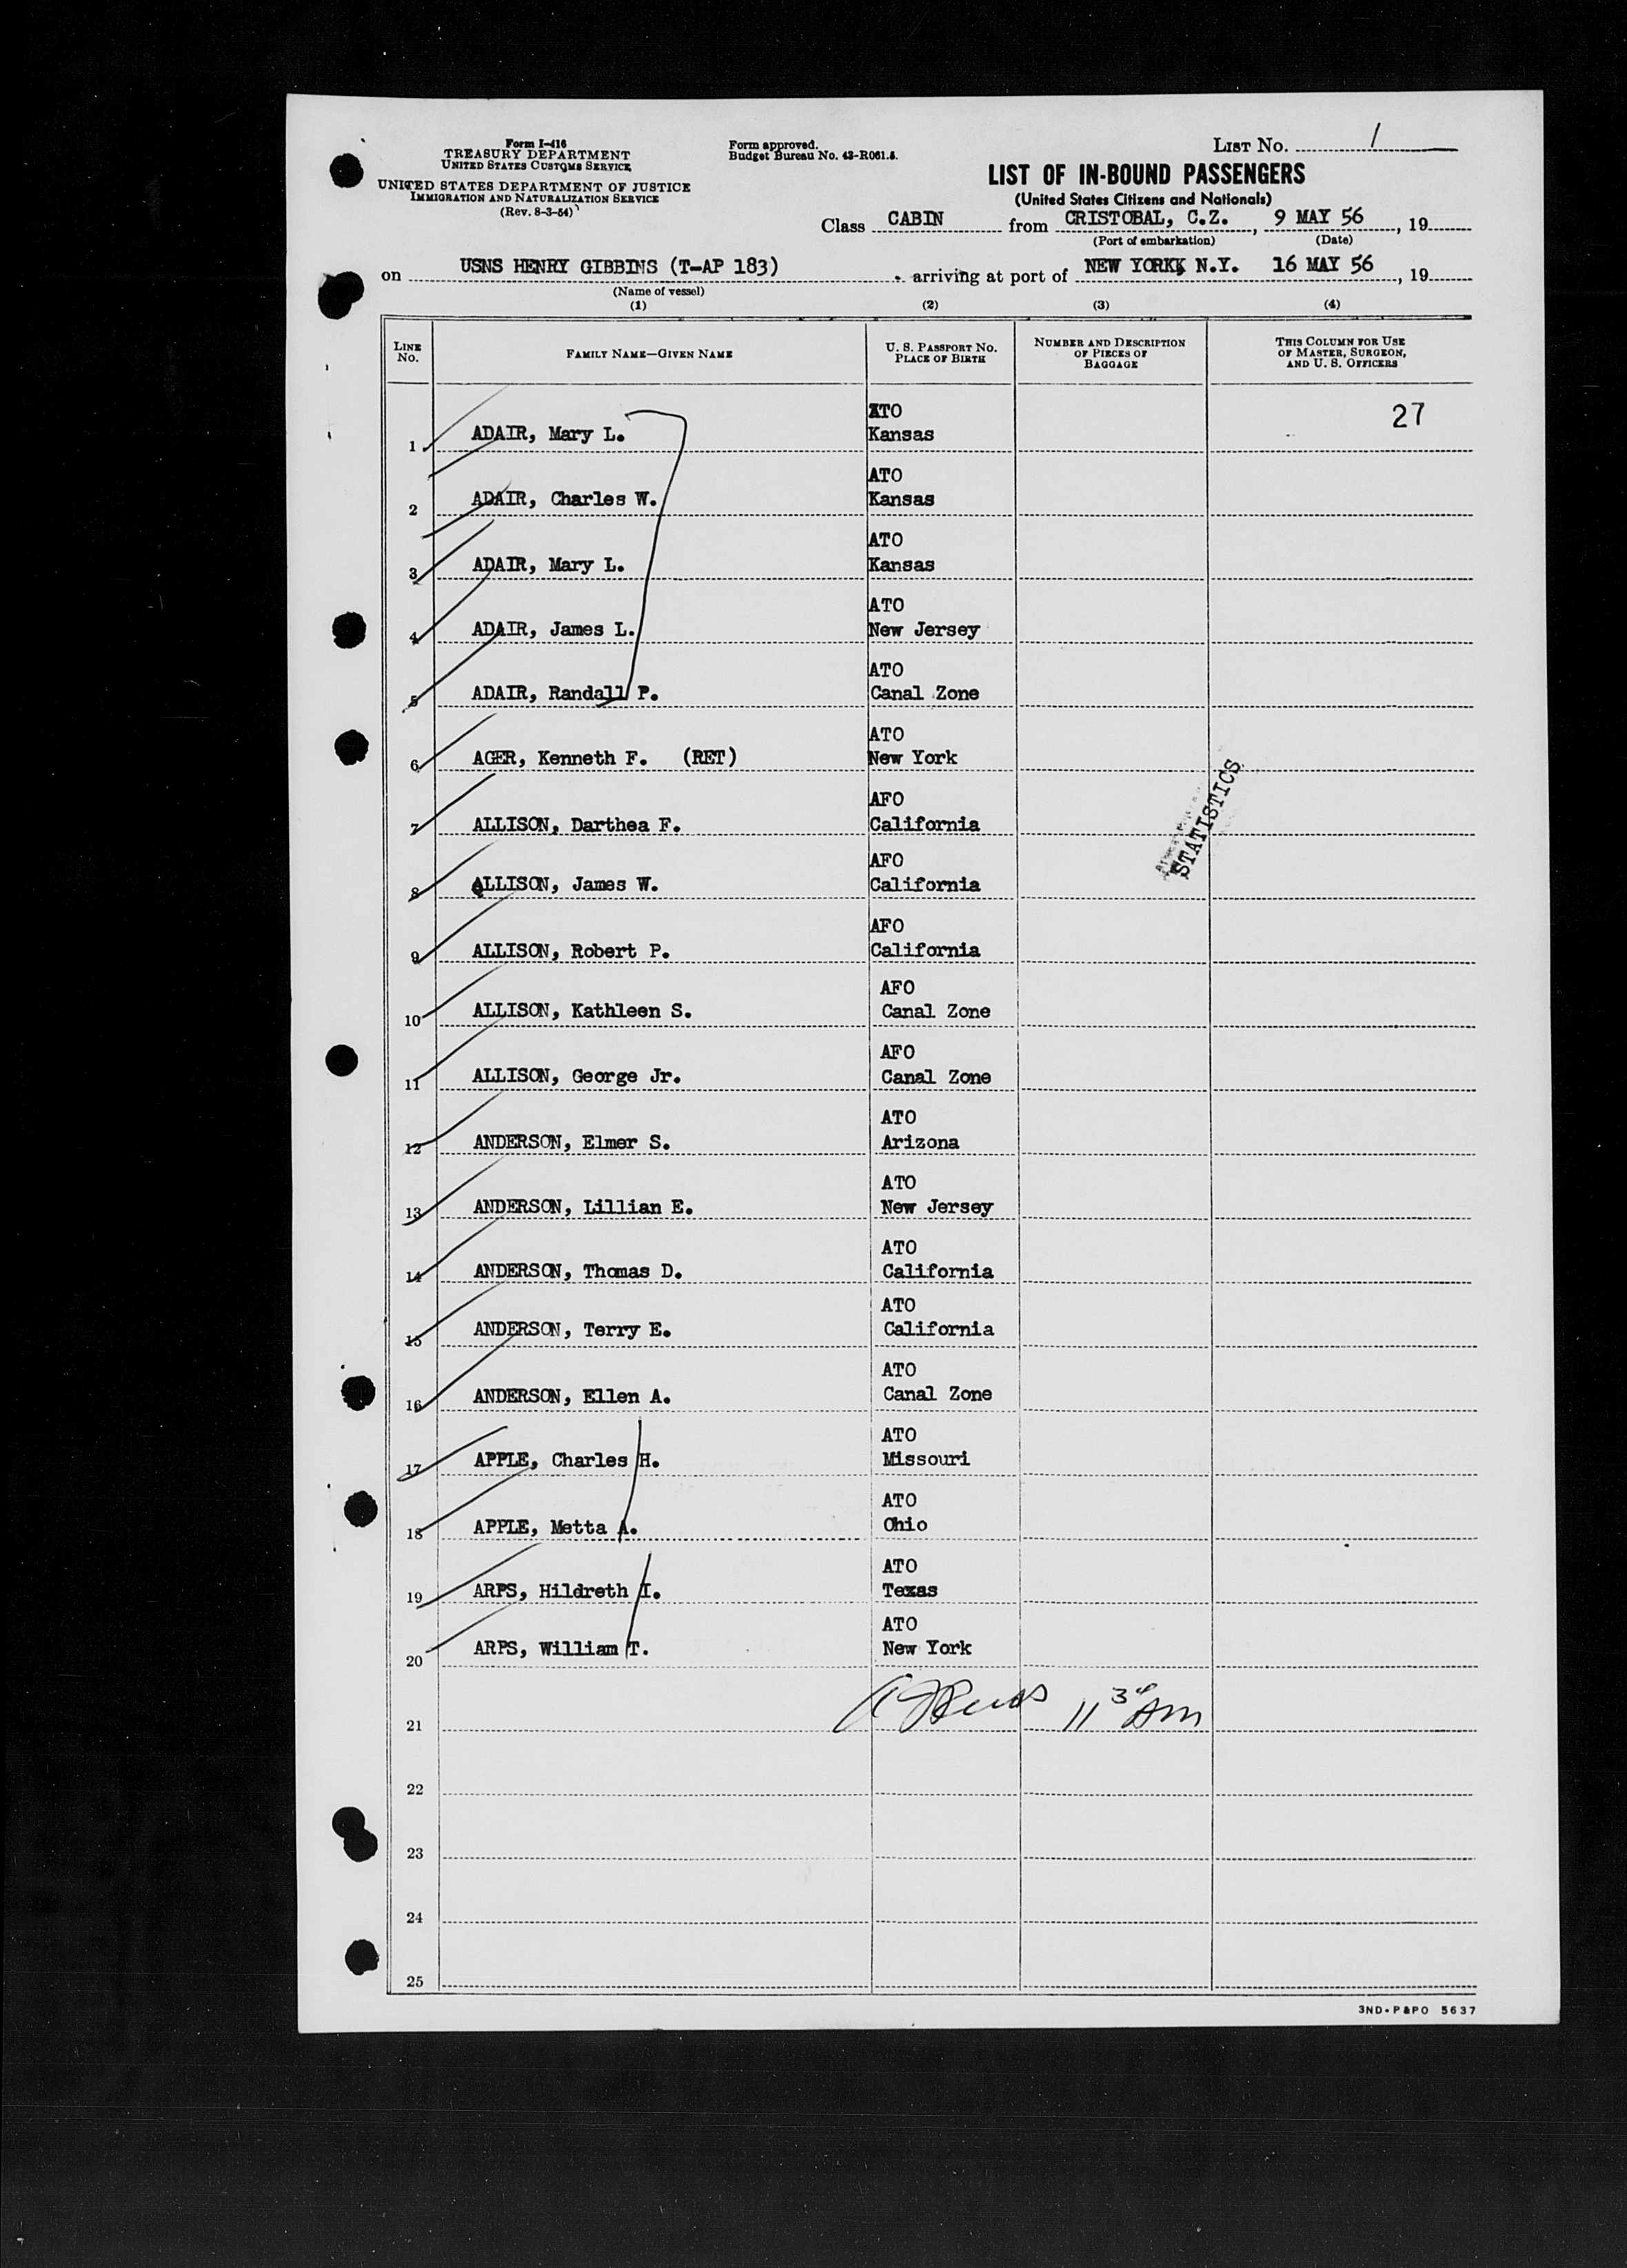 Form I-416
TREASURY DEPARTMENT
UNITED STATES CUSTOMS SERVICE
UNITED STATES DEPARTMENT OF JUSTICE
IMMIGRATION AND NATURALIZATION SERVICE
(Rev. 8-3-54)
Form approved.
Budget Bureau No. 43-R061.5.
LIST No. 1
LIST OF IN-BOUND PASSENGERS
(United States Citizens and Nationals)
Class CABIN from CRISTOBAL, C.Z. , 9 MAY 56 , 19
(Port of embarkation) (Date)
on USNS HENRY GIBBINS (T-AP 183) arriving at port of NEW YORK, N.Y. 16 MAY 56 , 19
(Name of vessel)
(1) (2) (3) (4)
LINE No. FAMILY NAME—GIVEN NAME U. S. PASSPORT No. PLACE OF BIRTH NUMBER AND DESCRIPTION OF PIECES OF BAGGAGE THIS COLUMN FOR USE OF MASTER, SURGEON, AND U. S. OFFICERS
ATO 27
1 ADAIR, Mary L. Kansas
ATO
2 ADAIR, Charles W. Kansas
ATO
3 ADAIR, Mary L. Kansas
ATO
4 ADAIR, James L. New Jersey
ATO
5 ADAIR, Randall P. Canal Zone
ATO
6 AGER, Kenneth F. (RET) New York
AFO
7 ALLISON, Darthea F. California
STATISTICS
AFO
8 ALLISON, James W. California
AFO
9 ALLISON, Robert P. California
AFO
10 ALLISON, Kathleen S. Canal Zone
AFO
11 ALLISON, George Jr. Canal Zone
ATO
12 ANDERSON, Elmer S. Arizona
ATO
13 ANDERSON, Lillian E. New Jersey
ATO
14 ANDERSON, Thomas D. California
ATO
15 ANDERSON, Terry E. California
ATO
16 ANDERSON, Ellen A. Canal Zone
ATO
17 APPLE, Charles H. Missouri
ATO
18 APPLE, Metta A. Ohio
ATO
19 ARPS, Hildreth I. Texas
ATO
20 ARPS, William T. New York
11 30 AM
21
22
23
24
25
3ND-P&PO 5637